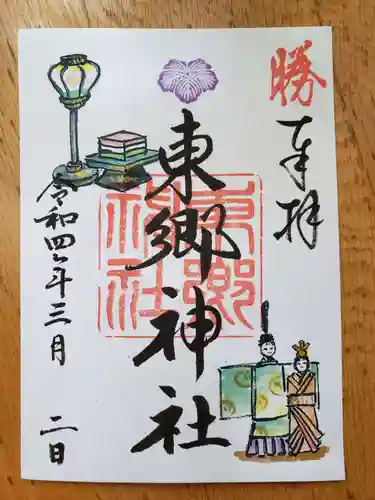 勝
奉拝
東郷神社
東郷
神社
令和四年三月二日